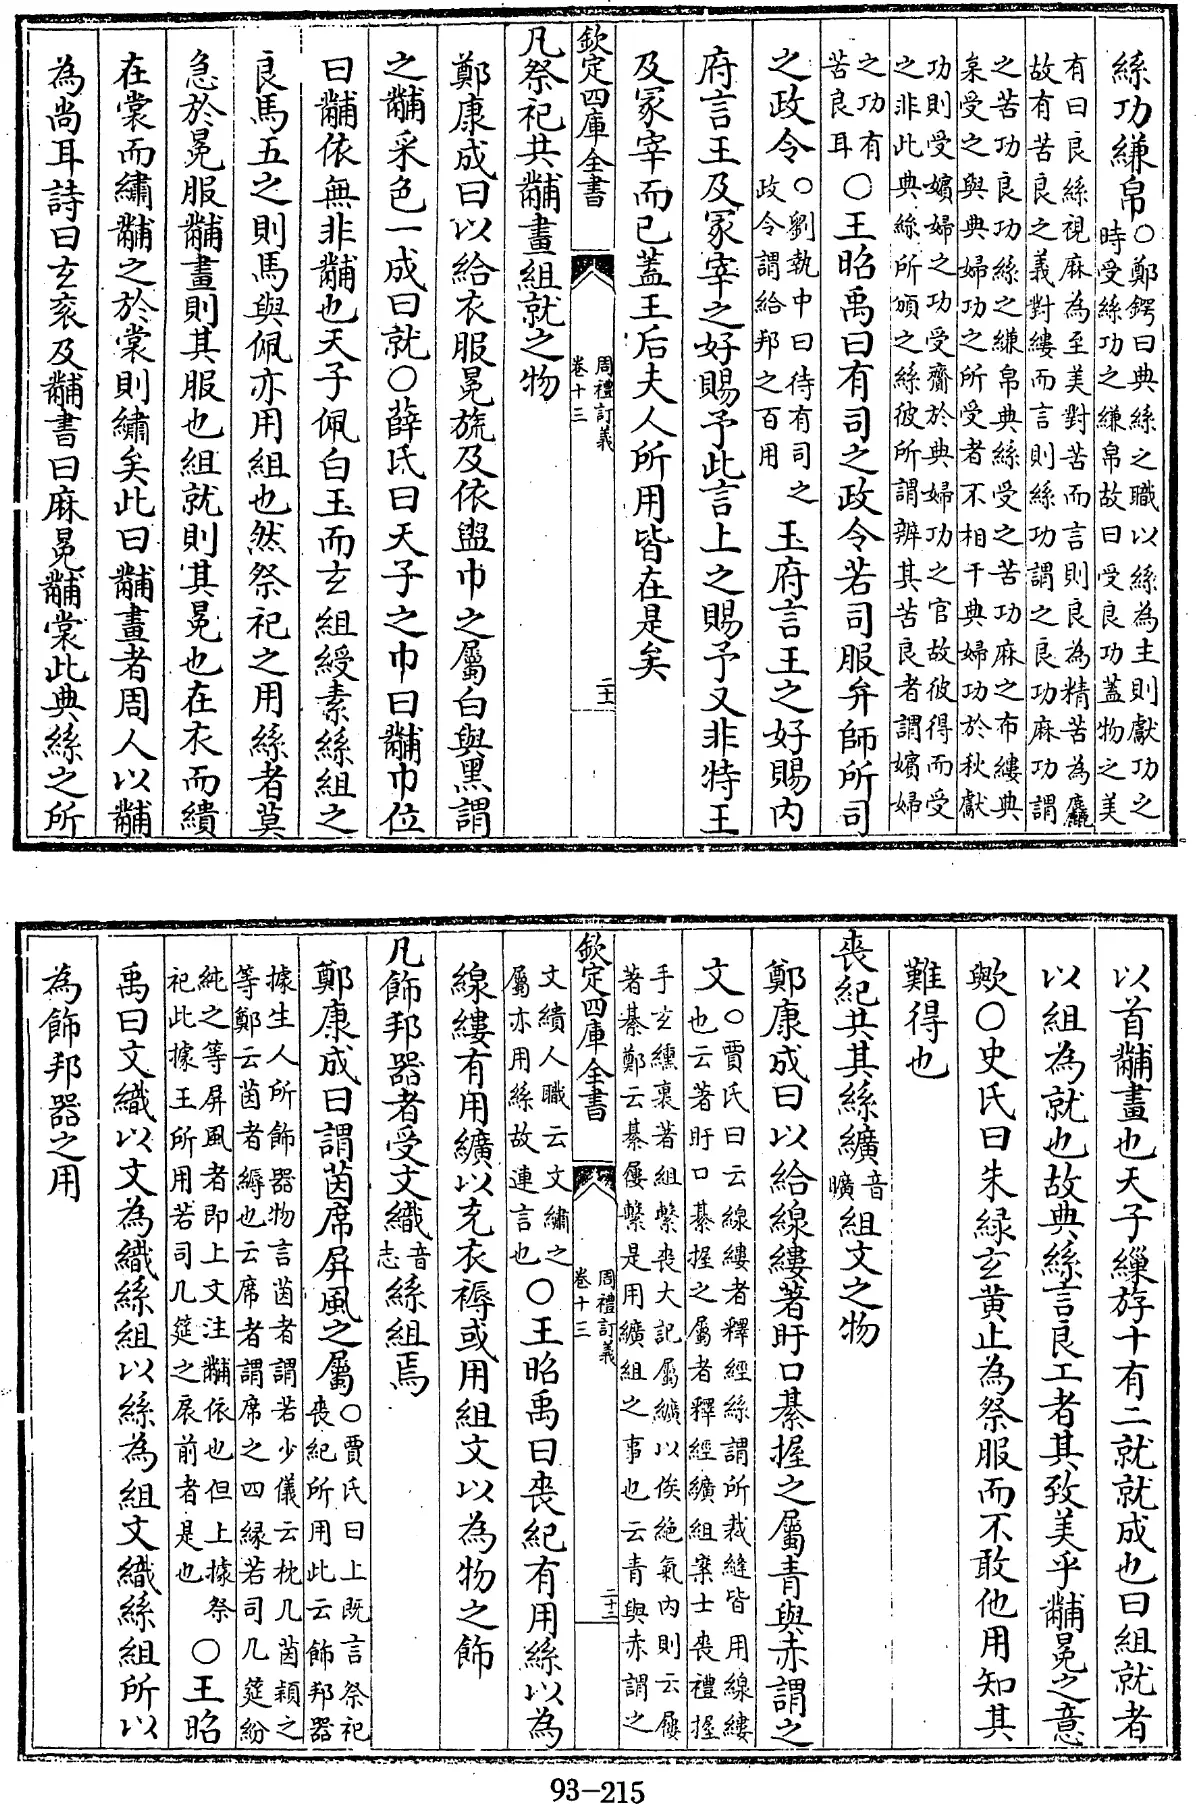 絲功縑帛○鄭鍔曰典絲之職以絲為主則獻功之
時受絲功之縑帛故曰受良功蓋物之美
有曰良絲視麻為至美對苦而言則良為精苦為麤
故有苦良之義對縷而言則絲功謂之良功麻功謂
之苦功良功絲之縑帛典絲受之苦功麻之布縷典
枲受之與典婦功之所受者不相干典婦功於秋獻
功則受嬪婦之功受齎於典婦功之官故彼得而受
之非此典絲所頒之絲彼所謂辨其苦良者謂嬪婦
之功有
苦良耳○王昭禹曰有司之政令若司服弁師所司
之政令○劉執中曰待有司之
政令謂給邦之百用玉府言王之好賜内
府言王及冢宰之好賜予此言上之賜予又非特王
及冢宰而已蓋王后夫人所用皆在是矣
欽定四庫全書
周禮訂義
卷十三
凡祭祀共黼畫組就之物
鄭康成曰以給衣服冕旒及依盥巾之屬白與黑謂
之黼采色一成曰就○薛氏曰天子之巾曰黼巾位
曰黼依無非黼也天子佩白玉而玄組綬素絲組之
良馬五之則馬與佩亦用組也然祭祀之用絲者莫
急於冕服黼畫則其服也組就則其冕也在衣而繢
在裳而繡黼之於裳則繡矣此曰黼畫者周人以黼
為尚耳詩曰玄衮及黼書曰麻冕黼裳此典絲之所
以首黼畫也天子繅斿十有二就就成也曰組就者
以組為就也故典絲言良工者其致美乎黼冕之意
歟○史氏曰朱緑玄黄止為祭服而不敢他用知其
難得也
喪紀共其絲纊音
曠組文之物
鄭康成曰以給線縷著盱口綦握之屬青與赤謂之
文○賈氏曰云線縷者釋經絲謂所裁縫皆用線縷
也云著盱口綦握之屬者釋經纊組案士喪禮握
手玄纁裏著組繫喪大記屬纊以俟絶氣内則云屨
著綦鄭云綦屨繫是用纊組之事也云青與赤謂之
欽定四庫全書
周禮訂義
卷十三
二十三
文繢人職云文繡之
屬亦用絲故連言也○王昭禹曰喪紀有用絲以為
線縷有用纊以充衣褥或用組文以為物之飾
凡飾邦器者受文織音
志絲組焉
鄭康成曰謂茵席屏風之屬○賈氏曰上既言祭祀
喪紀所用此云飾邦器
據生人所飾器物言茵者謂若少儀云枕几茵穎之
等鄭云茵者縟也云席者謂席之四緣若司几筵紛
純之等屏風者即上文注黼依也但上據祭
祀此據王所用若司几筵之扆前者是也○王昭
禹曰文織以文為織絲組以絲為組文織絲組所以
為飾邦器之用
93-215